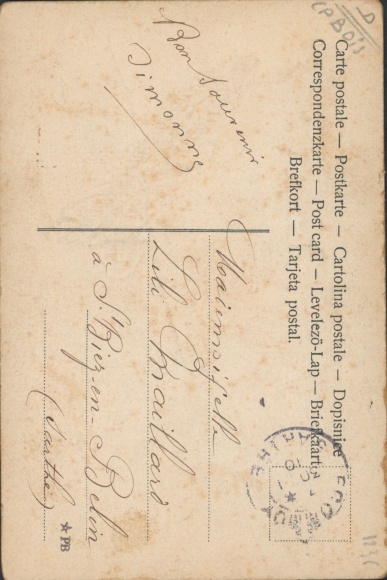 Carte postale — Postkarte — Cartolina postale — Dopisnice
Correspondenzkarte — Post card — Levelező-Lap — Briefkaart
Brefkort — Tarjeta postal.
Bon Souvenir
Simonne
Mademoiselle
Lili Maillard
à St Biez-en-Belin
(Sarthe)
★ PB
D